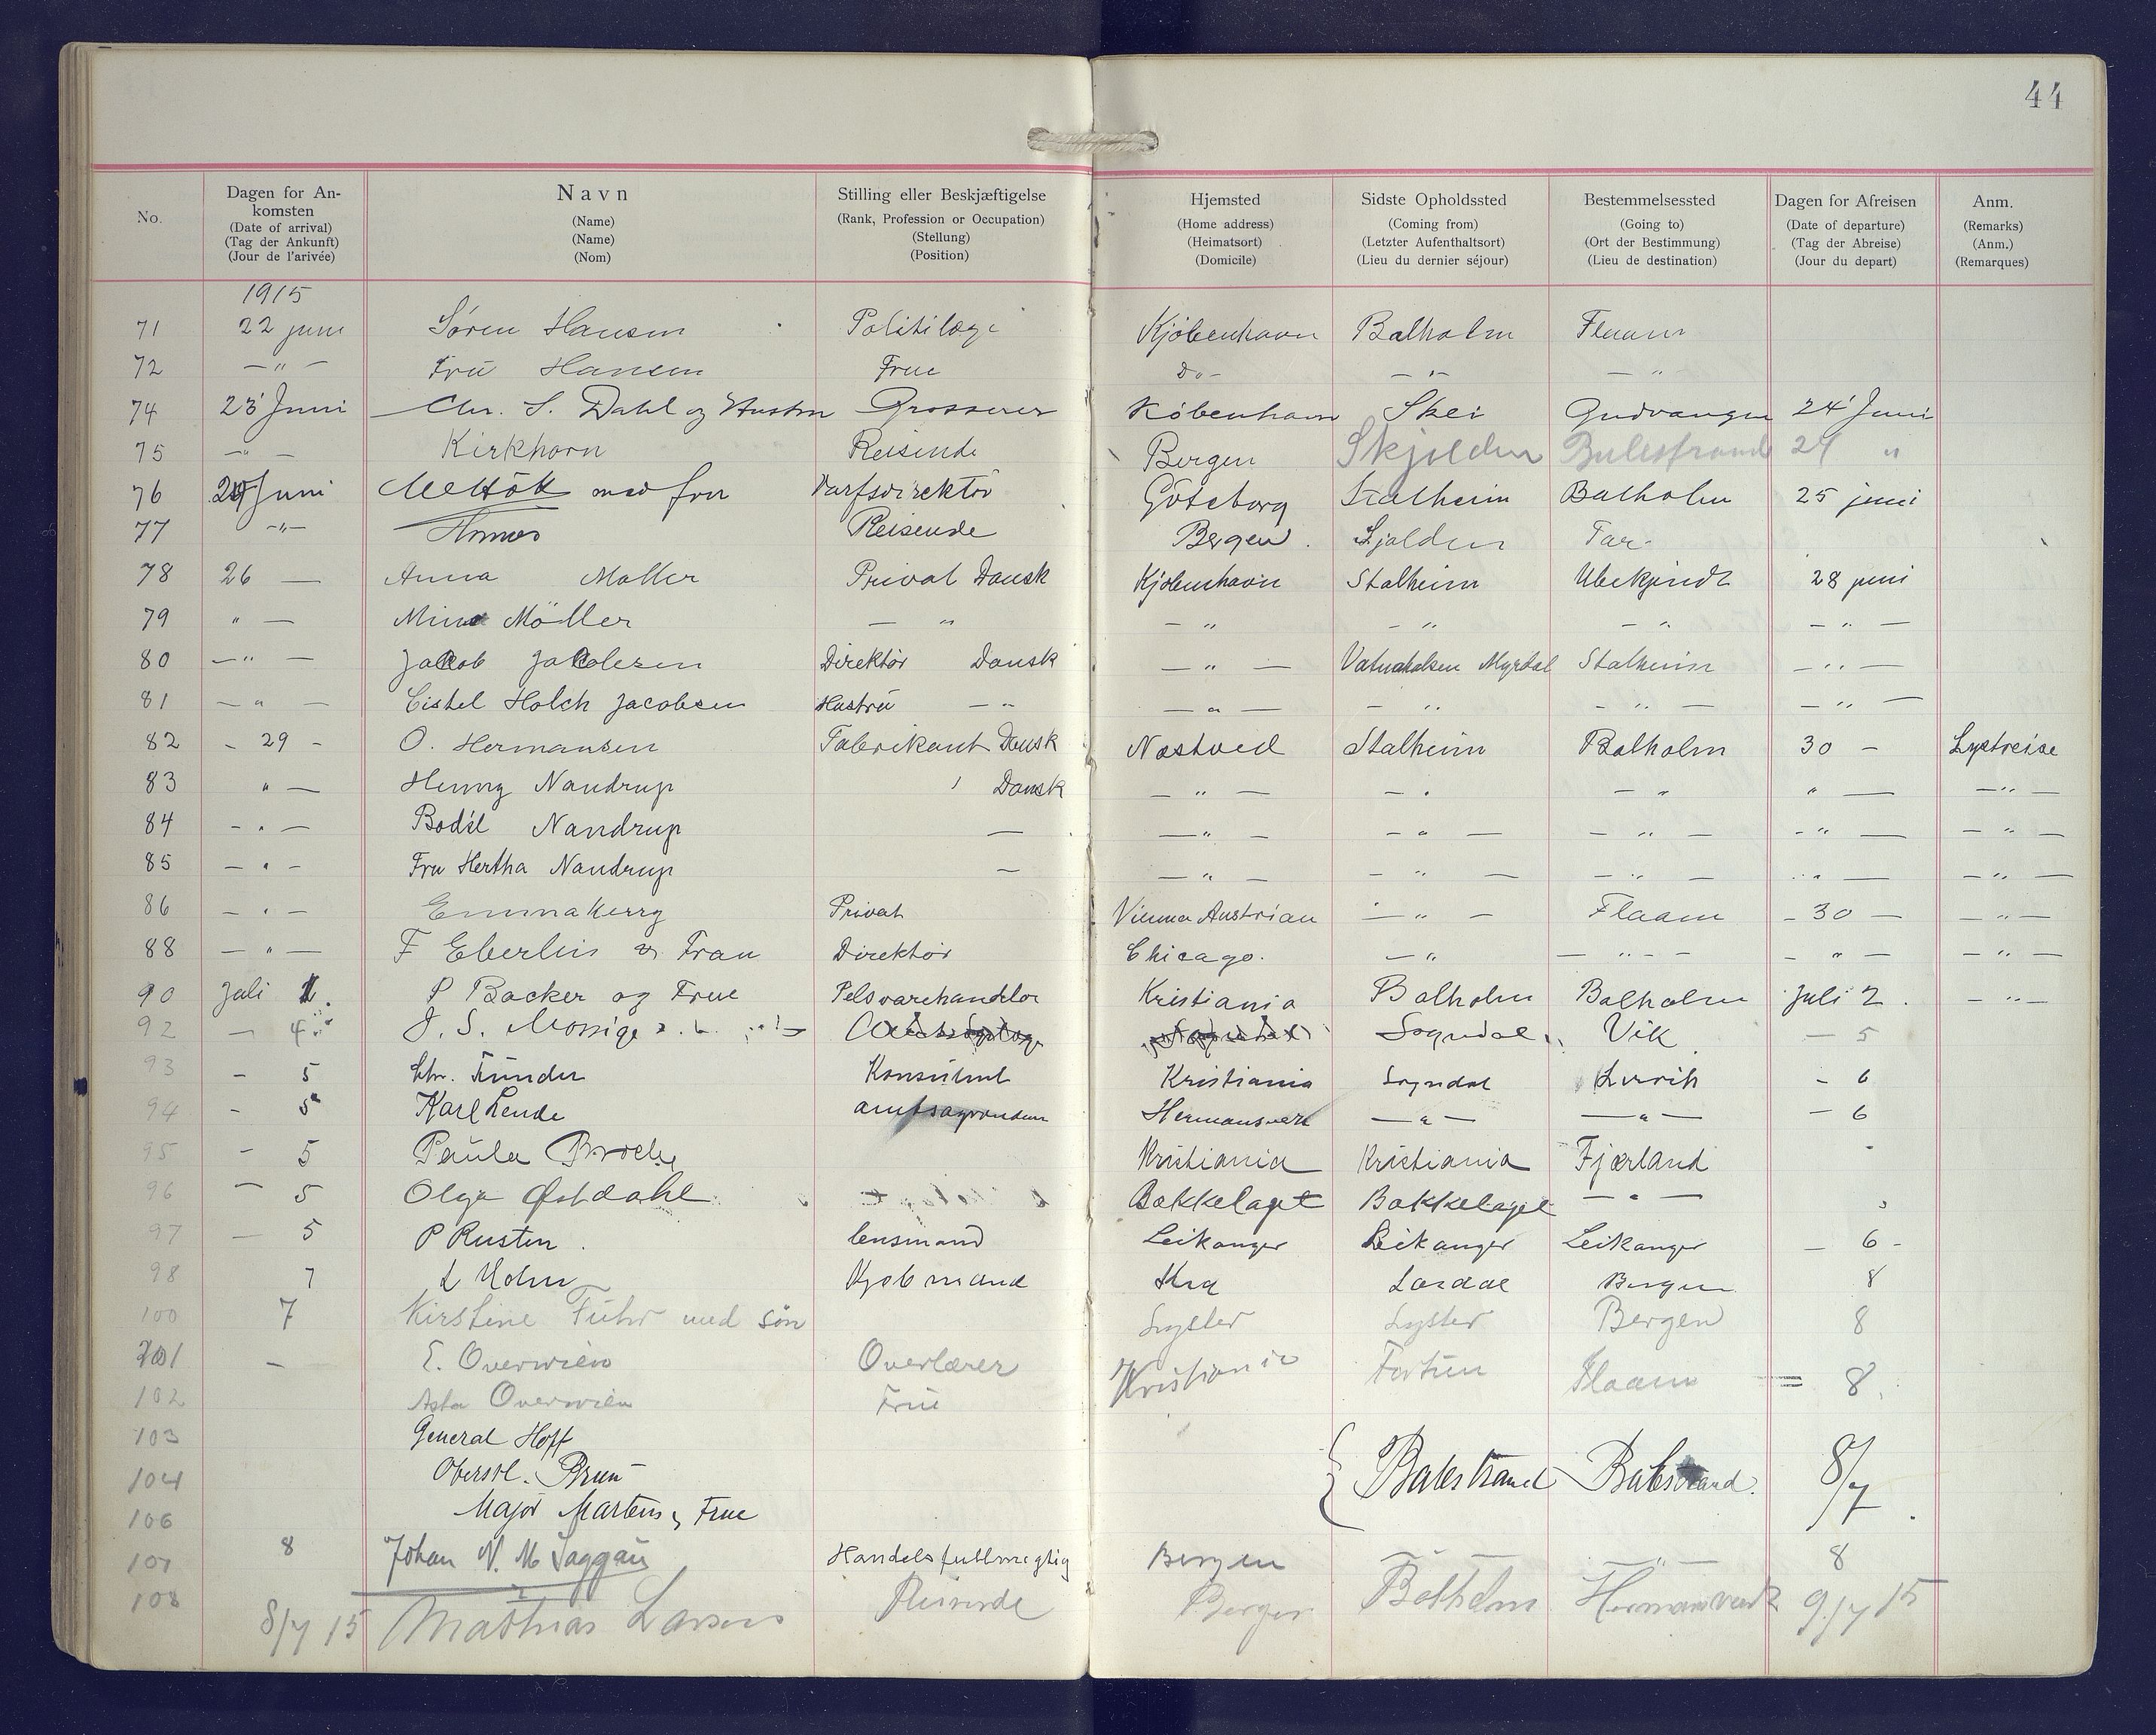 44
No. Dagen for An- N a v n Stilling eller Beskjæftigelse Hjemsted Sidste Opholdssted Bestemmelsessted Dagen for Afreisen Anm.
komsten (Name) (Rank, Profession or Occupation) (Home address) (Coming from) (Going to) (Date of departure) (Remarks)
(Date of arrival) (Name) (Stellung) (Heimatsort) (Letzter Aufenthaltsort) (Ort der Bestimmung) (Tag der Abreise) (Anm.)
(Tag der Ankunft) (Nom) (Position) (Domicile) (Lieu du dernier séjour) (Lieu de destination) (Jour du depart) (Remarques)
(Jour de l'arivée)
1915
71 22 juni Søren Hansen Politilæge Kjöbenhavn Balholm Flaam
72 —"— Frü Hansen Frue Do- —"— —"
74 23 Juni Chr. S. Dahl og Hustru Grosserer Köbenhavn Skei Gudvangen 24 Juni
75 —"— Kirkhorn Reisende Bergen Skjolden Balestrand 24 "
76 24 Juni med fru Varfsdirektör Göteborg Stalheim Balholm 25 juni
77 —"— Reisende Bergen. Sjolden
78 26 — Anna Møller Privat Dansk Kjöbenhavn Stalheim Ubekjendt 28 juni
79 " — Möller — " — " — " — " — " —
80 —"— Jacob Jacobsen Direktör Dansk — " — Vatnahalsen Myrdal Stalheim — " —
81 — " — Holch Jacobsen Hustrü — " — " — — " — " — — " —
82 - 29 - O. Hermansen Fabrikant Dansk Næstved Stalheim Balholm 30 - Lystreise
83 " — Henny Nandrup Dansk — " — — " — " " — —"—
84 - " — Bodil Nandrup — — " — — " — — " — - " — — " —
85 — " — Fru Hertha Nandrup — — " — — " — — " — " — — " —
86 — " — Emma Kerry Privat Vienna Austrian — " — Flaam - 30 — — " —
88 — " — F Eberlein Frau Direktör Chicago. — " — " — — " — — " —
90 Juli 1. P Backer og Frue Pelsvarehandler Kristiania Balholm Balholm Juli 2. — " —
92 — 4 J. S. Mossige Sogndal Vik — 5
93 — 5 Chr. Kristiania Sogndal — 6
94 — 5 Karl Lende Hermansverk — " — — " — — 6
95 — 5 Paula Kristiania Kristiania Fjærland "
96 — 5 Olga Østdahl. Bækkelaget Bækkelaget — " —
97 — 5 P Rusten. lensmand Leikanger Leikanger Leikanger — 6 -
98 7 L Holm Kjøbmand Kra Lærdal Bergen 8
100 7 Kirstine Führ med sön Lyster Lyster Bergen 8
101 — E. Overwien Overlærer Kristiania Fortün Flaam = 8.
102 Asta Overwien Früe
103 General Hoff
104 Oberstl. Brun Balestrand Balestrand. 8/7.
106 Major Martens, Frue
107 8 Johan N. M. Saggau Handelsfuldmegtig Bergen — — " — 8
108 8/7 15 Mathias Larsen Reisende Bergen Balholm Hermansverk 9/7 15